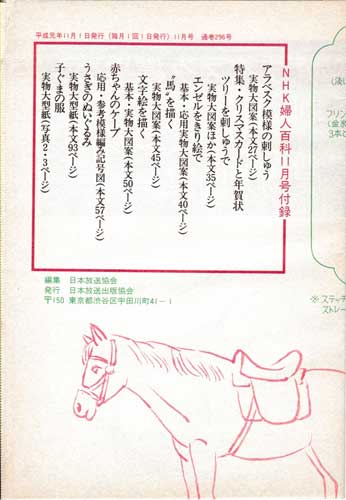 平成元年11月1日発行(毎月1回1日発行)11月号 通巻296号
NHK婦人百科11月号付録
アラベスク模様の刺しゅう
実物大図案(本文27ページ)
特集・クリスマスカードと年賀状
ツリーを刺しゅうで
実物大図案ほか(本文35ページ)
エンゼルをきり絵で
基本・応用実物大図案(本文40ページ)
“馬”を描く
実物大図案(本文45ページ)
文字絵を描く
基本・実物大図案(本文50ページ)
赤ちゃんのケープ
応用・参考模様編み記号図(本文57ページ)
うさぎのぬいぐるみ
実物大型紙(本文93ページ)
子ぐまの服
実物大型紙(写真2・3ページ)
編集 日本放送協会
発行 日本放送出版協会
〒150 東京都渋谷区宇田川町41-1
プリン
3本と
※ ステッチ
ストレー